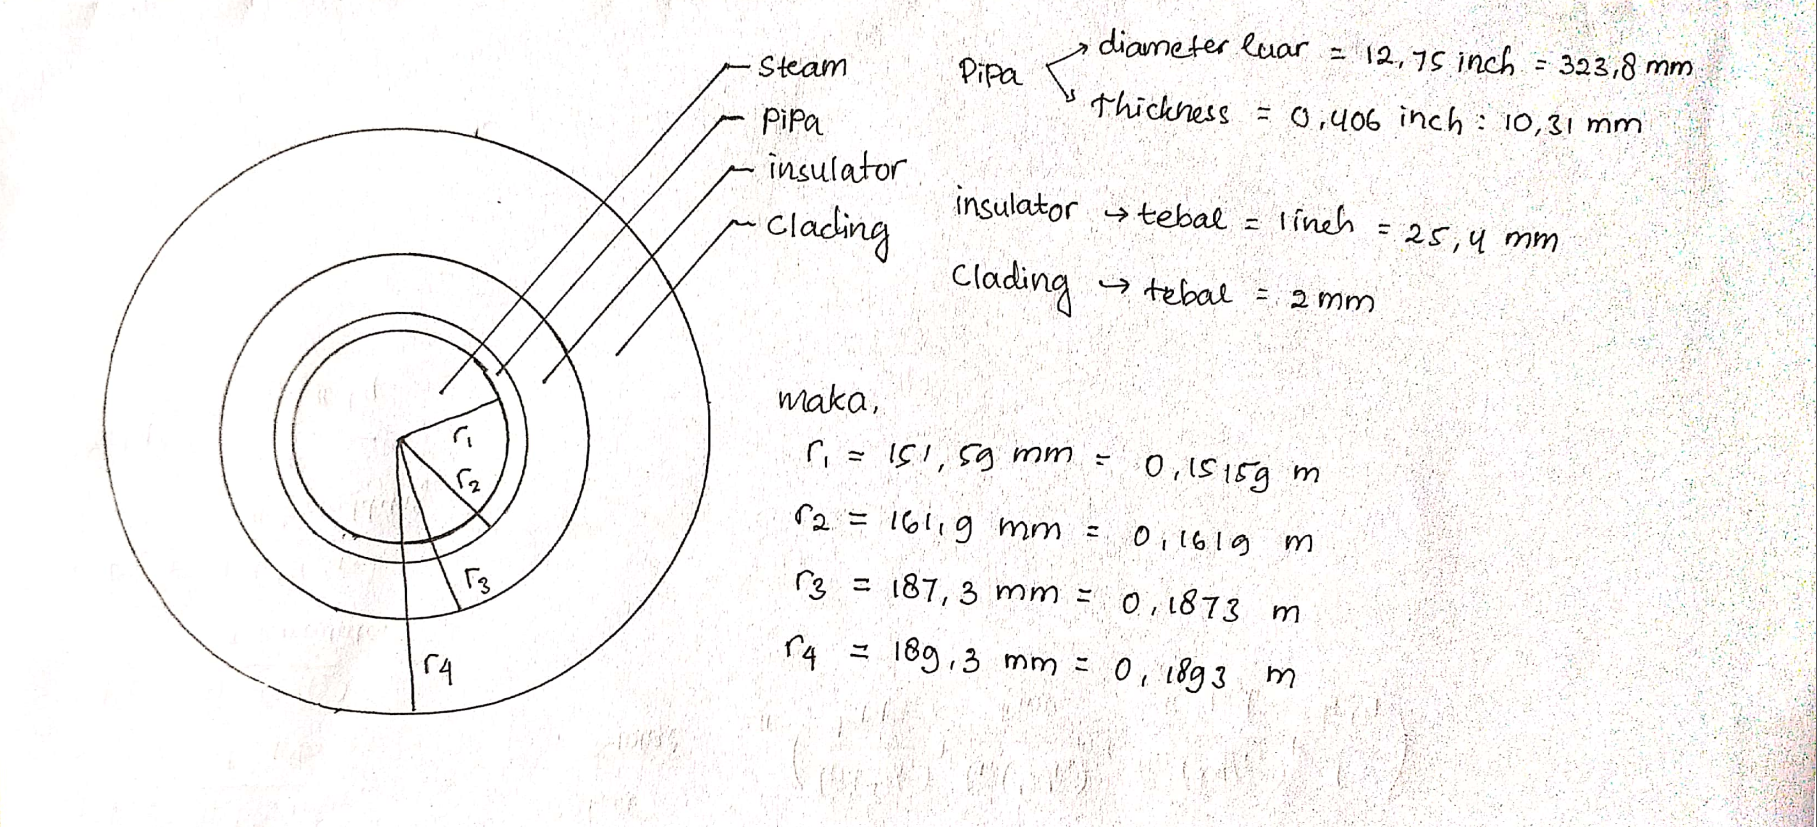 Steam
Pipa
insulator
Clading
Pipa → diameter luar = 12,75 inch = 323,8 mm
→ thickness = 0,406 inch = 10,31 mm
insulator → tebal = 1 inch = 25,4 mm
Clading → tebal = 2 mm
maka,
r1 = 151,59 mm = 0,15159 m
r2 = 161,9 mm = 0,1619 m
r3 = 187,3 mm = 0,1873 m
r4 = 189,3 mm = 0,1893 m
r1
r2
r3
r4